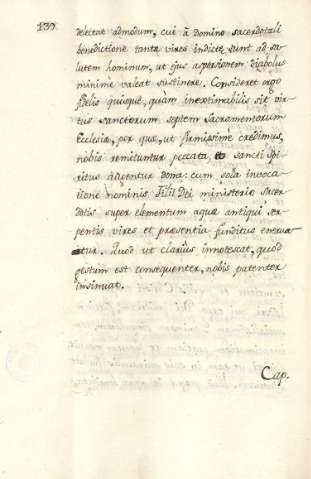 139.
delectat admodum, cui à domino sacerdotali
benedictione tanta vires indictæ sunt ad sa-
lutem hominum, ut ejus aspersionem diabolus
minimè valeat sustinere. Consideret ergo
fidelis quisque, quam inextimabilis sit vir-
tus sanctorum septem Sacramentorum
Ecclesiæ, per quæ, ut firmissimè credimus,
nobis remittuntur peccata et sancti Spi-
ritus augentur dona: cum sola invoca-
tione nominis Filii Dei ministerio sacer-
dotis super elementum aquæ antiqui ser-
pentis vires et præsentia funditus enerva-
tur. Quod ut clariùs innotescat, quod
gestum est consequenter, nobis patenter
insinuat.
Cap.